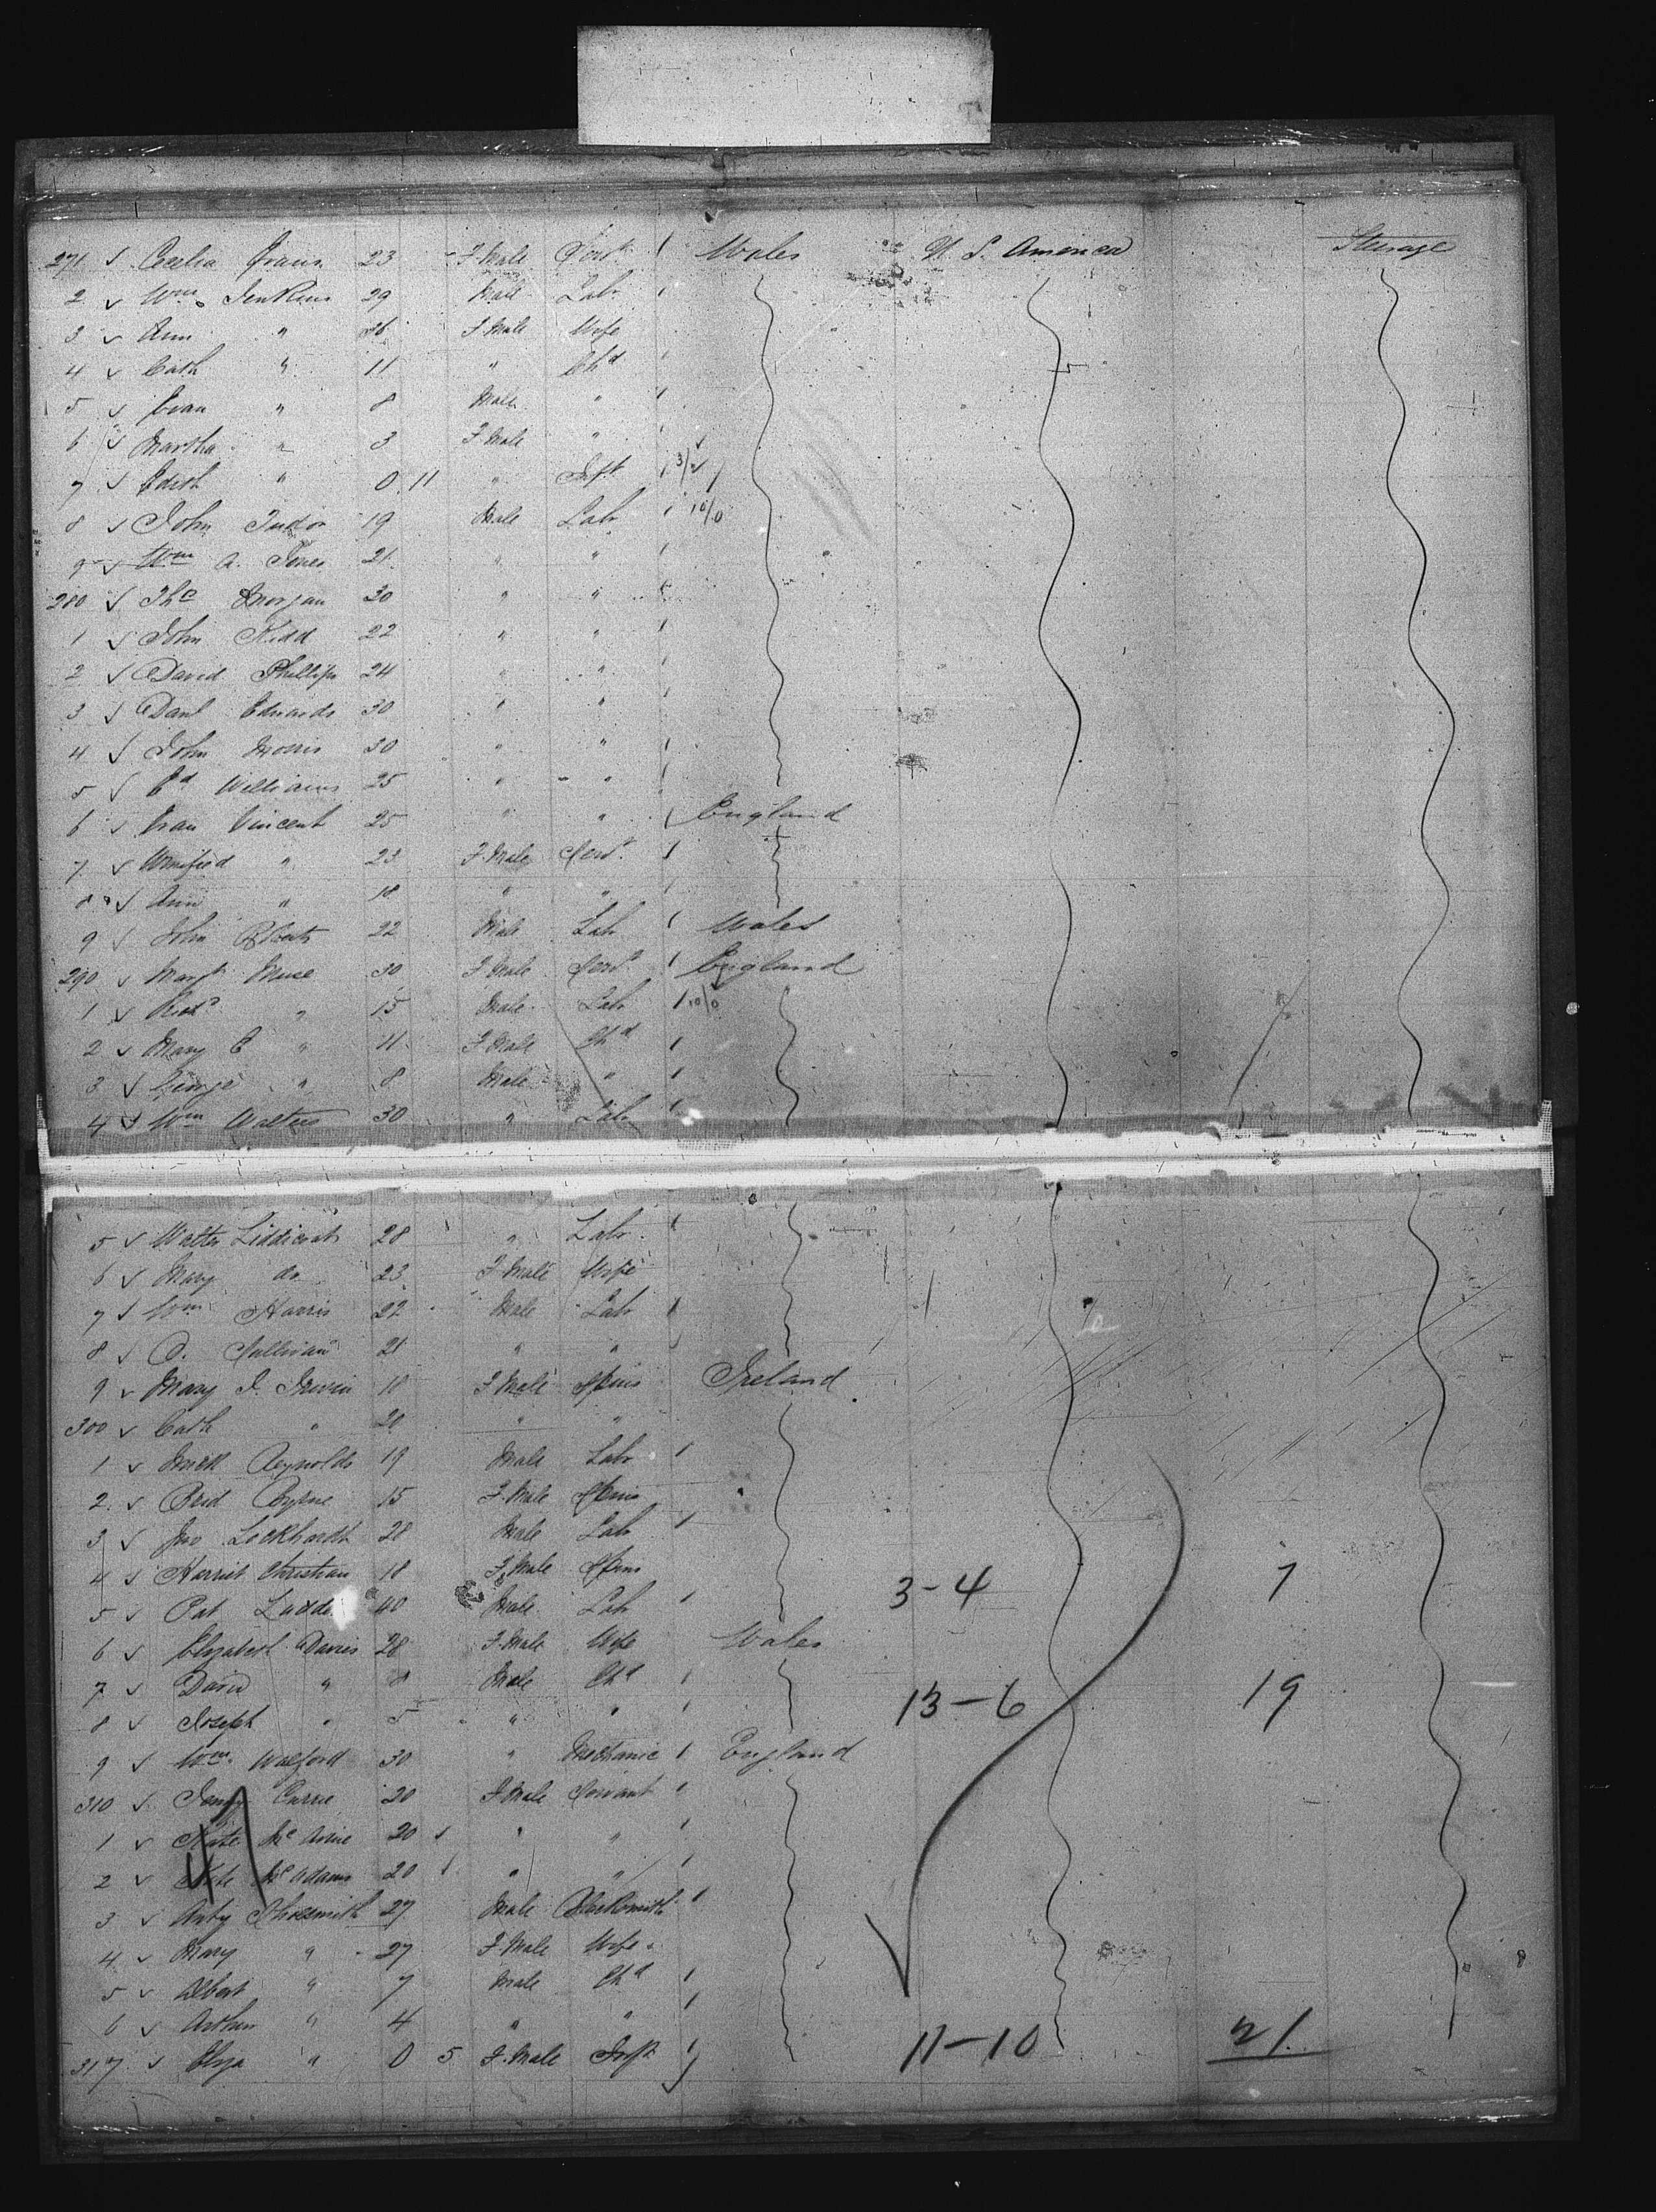 271 ✓ Cecelia Evans 23 F.Male Servt. Wales U. S. America Steerage
2 ✓ Wm. Jenkins 29 Male Labr
3 ✓ Ann " 26 F.Male Wife
4 ✓ Cath " 11 " Chd
5 ✓ Evan " 8 Male "
6 ✓ Martha " 3 F.Male "
7 ✓ Edith " 0 11 " Inft
8 ✓ John Tudor 19 Male Labr
9 ✓ Wm A. Jones 21 " "
280 ✓ Tho Morgan 20 " "
1 ✓ John Kidd 22 " "
2 ✓ David Phillips 24 " "
3 ✓ Danl Edwards 30 " "
4 ✓ John Morris 30 " "
5 ✓ Ed Williams 25 " "
6 ✓ Vincent 25 " " England
7 ✓ Winifred " 23 F.Male Servt.
8 ✓ Ann " 18 " "
9 ✓ John Roberts 22 Male Labr Wales
290 ✓ Margt Muse 30 F.Male Servt. England
1 ✓ Richd " 15 Male Labr
2 ✓ Mary E " 11 F.Male Chd
3 ✓ George " 8 Male "
4 ✓ Wm Walters 30 " Labr
5 ✓ Walter Liddicoat 28 " Labr
6 ✓ Mary do 23 F.Male Wife
7 ✓ Wm Harris 22 Male Labr
8 ✓ D. Sullivan 21 " "
9 ✓ Mary J. Irwin 18 F.Male Spins Ireland
300 ✓ Cath " 20 " "
1 ✓ Mick Reynolds 19 Male Labr
2 ✓ Brid Byrne 15 F.Male Spins
3 ✓ Jno Lockhardt 28 Male Labr
4 ✓ Harriet Christian 18 F.Male Spins 3-4 7
5 ✓ Pat 40 Male Labr
6 ✓ Elizabeth Davies 28 F.Male Wife Wales
7 ✓ David " 8 Male Chd 13-6 19
8 ✓ Joseph " 5 " "
9 ✓ Wm. Walford 30 " Mechanic England
310 ✓ Currie 20 F.Male Servant
1 ✓ Kate 20 " "
2 ✓ Kate McAdams 20 " "
3 ✓ Shoesmith 27 Male Blacksmith
4 ✓ Mary " 27 F.Male Wife
5 ✓ Albert " 7 Male Chd
6 ✓ Arthur " 4 " "
317 ✓ Eliza " 0 5 F.Male Inft 11-10 21